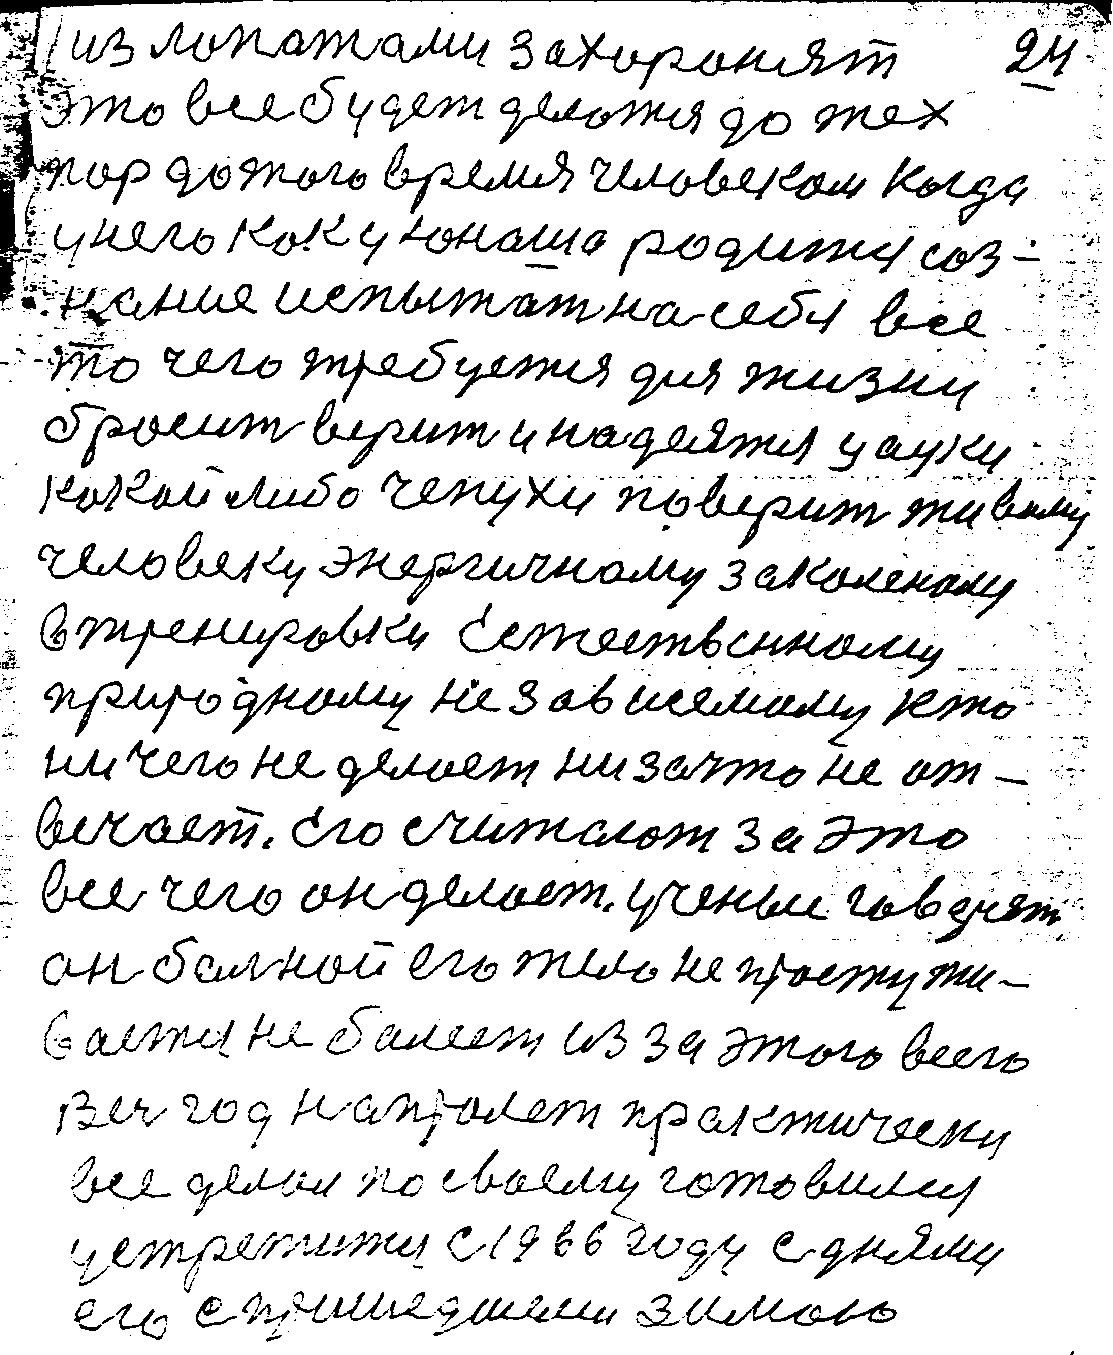 из лопатами захоронят 24
это все будет делатся до тех
пор до того время человеком когда
у него как у юнаша родится соз-
нание испытат на себя все
то чего требуется для жизни
бросит верит и надеятся у ауку
какой либо чепухи поверит живому
человеку энергичному закаленому
в тренировки Естественному
природному независемому кто
ничего не делает низачто не от-
вечает. Его считают за это
все чего он делает. ученые говорят
он балной его тело не простужи-
вается не балеет из за этого всего
Вес год напролет практически
все делал по своему готовился
устретится с 1966 году с днями
его с пришедшеми зимою